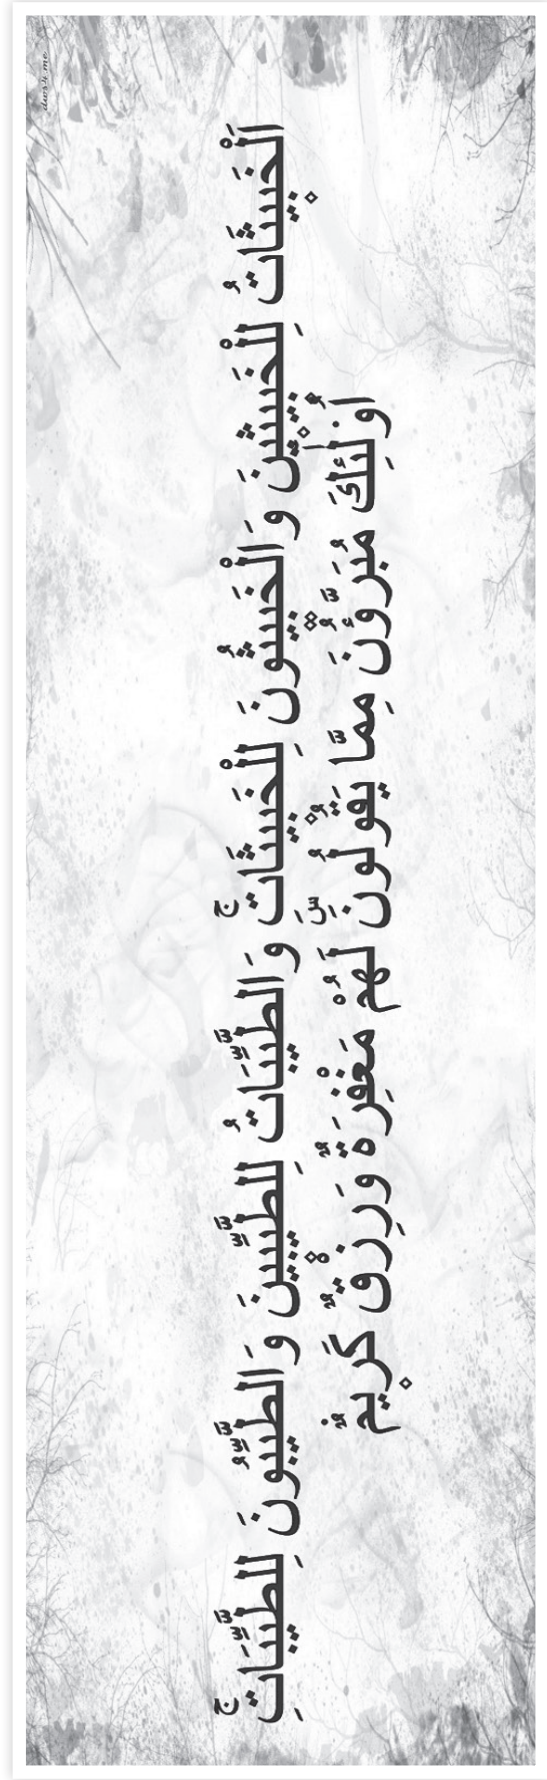 اَلْخَبِيثَاتُ لِلْخَبِيثِينَ وَالْخَبِيثُونَ لِلْخَبِيثَاتِ ۚ وَالطَّيِّبَاتُ لِلطَّيِّبِينَ وَالطَّيِّبُونَ لِلطَّيِّبَاتِ ۚ
اُو۬لٰٓئِكَ مُبَرَّؤُ۫نَ مِمَّا يَقُولُونَۜ لَهُمْ مَغْفِرَةٌ وَرِزْقٌ كَرِيمٌ۟
dws4.me